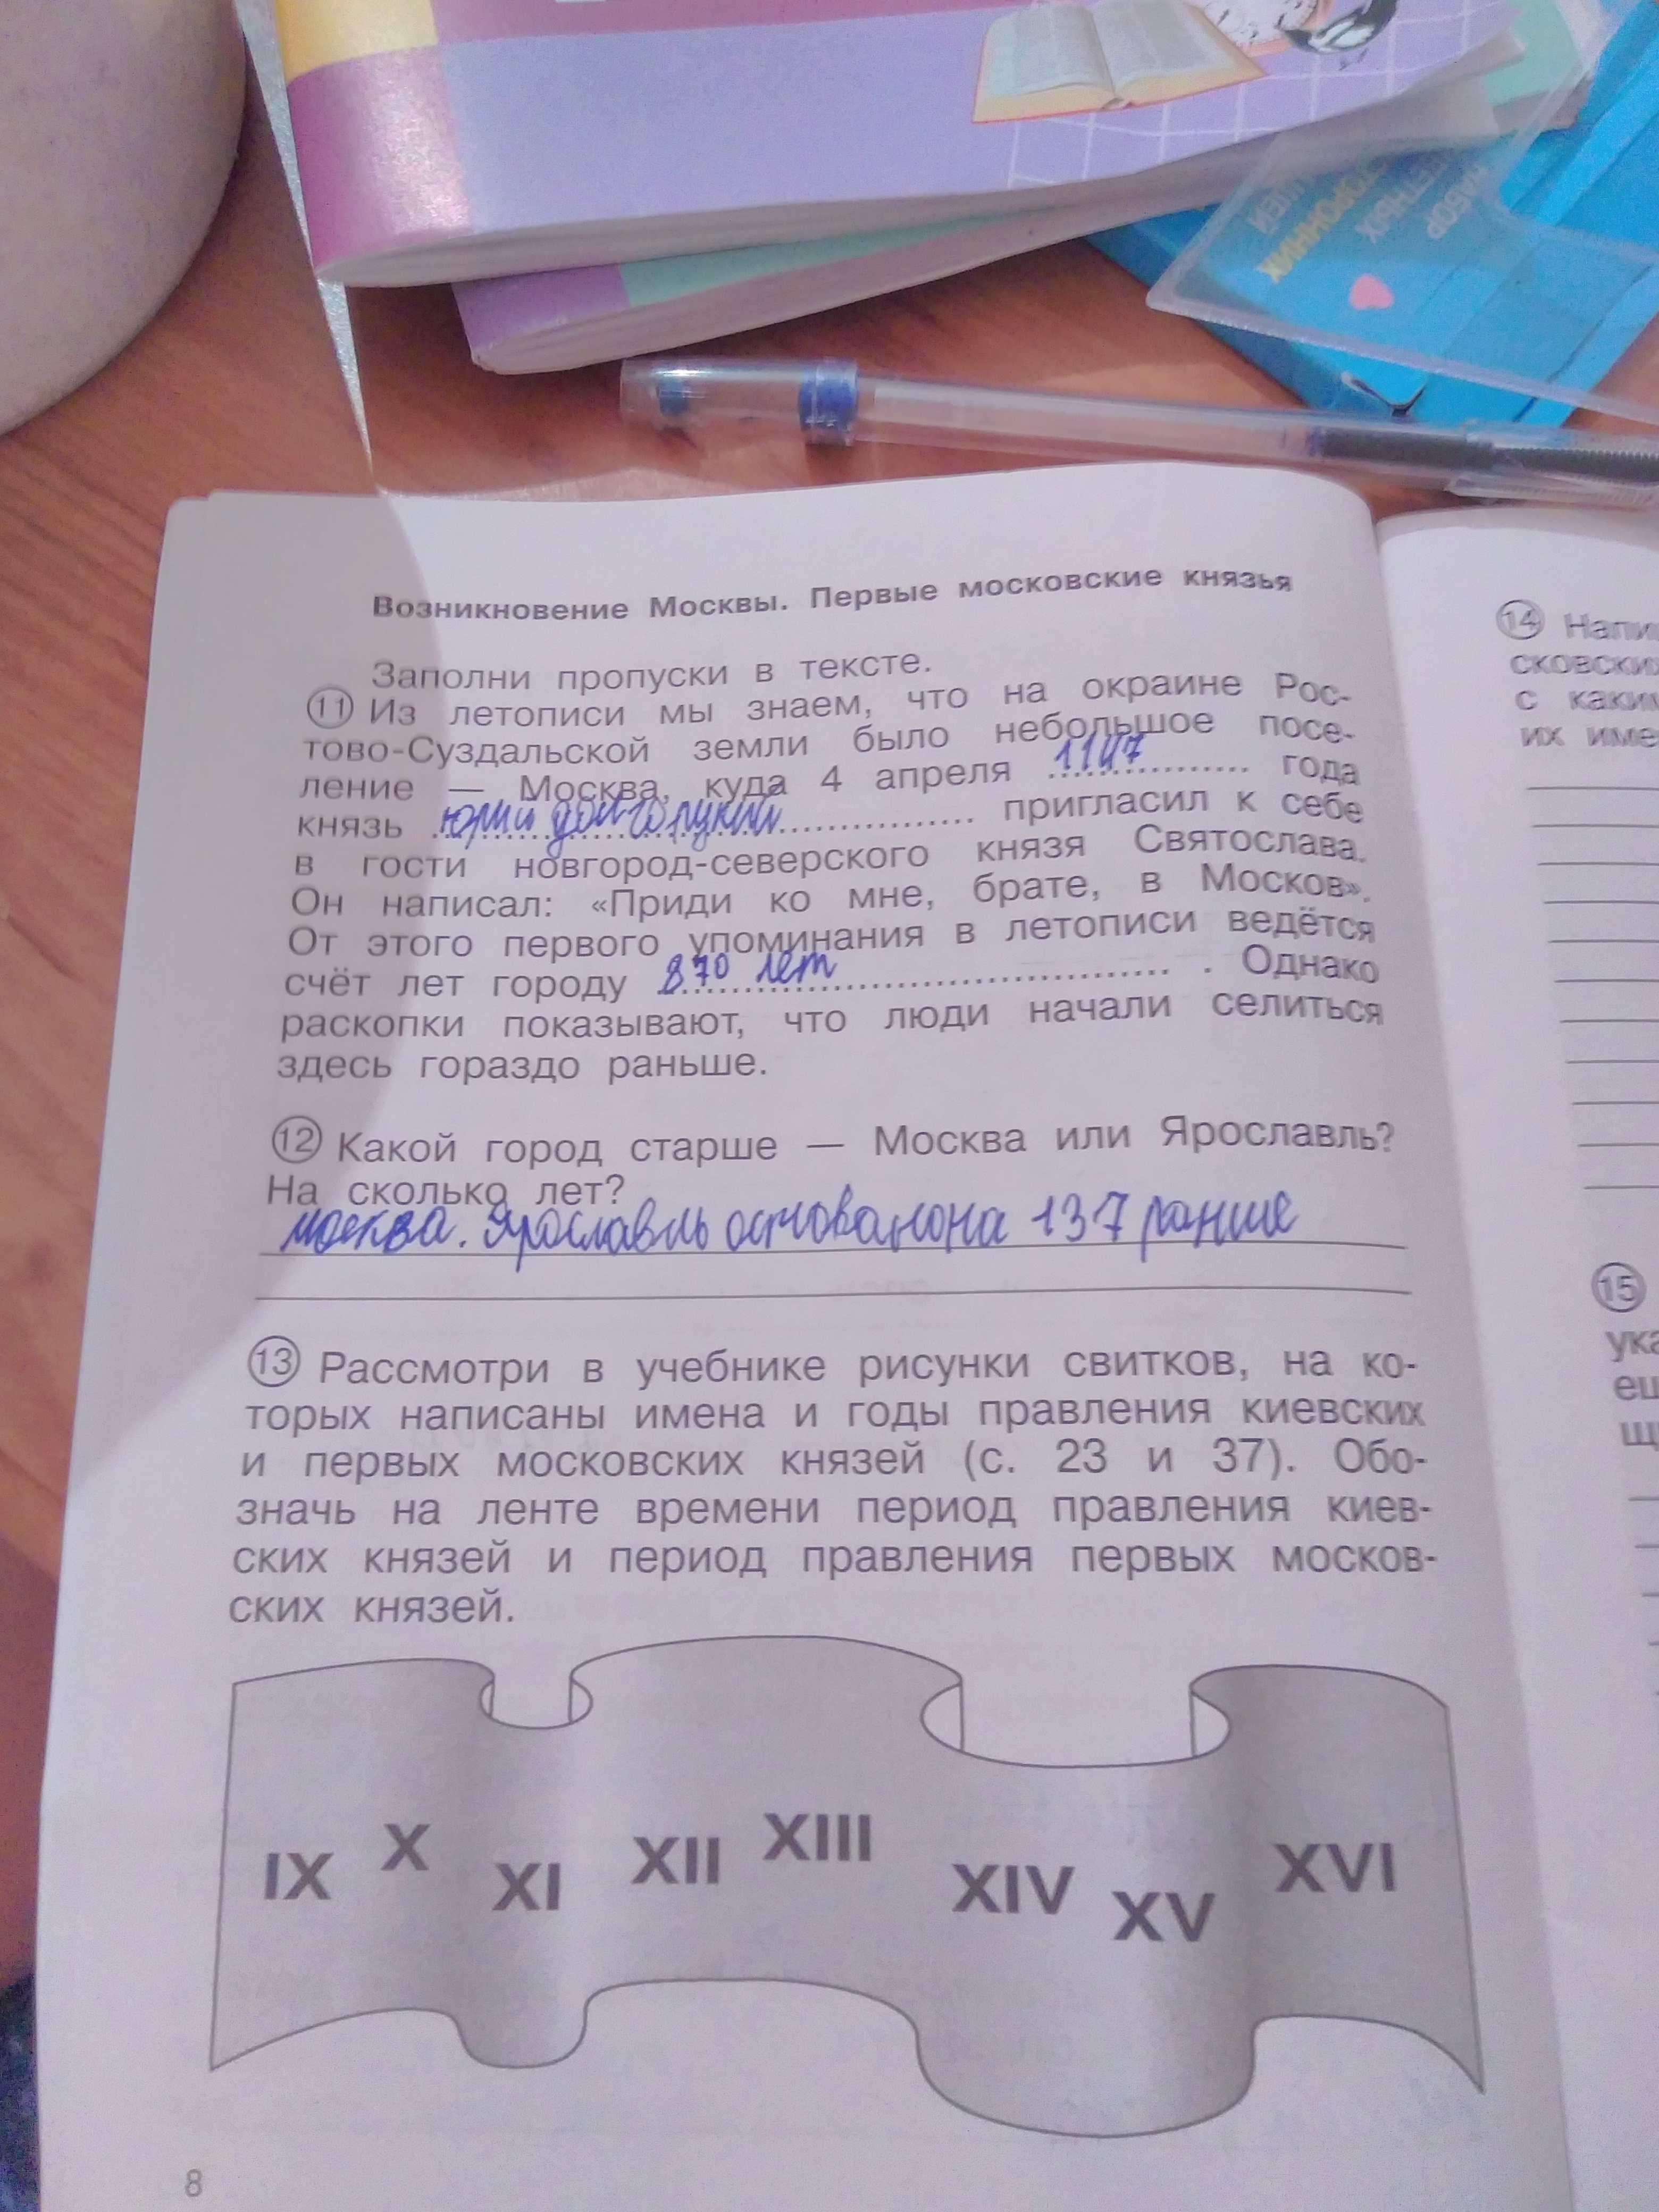 НАБОР
ЕТНЫХ
ТОРОННИХ
Возникновение Москвы. Первые московские князья
Заполни пропуски в тексте.
11 Из летописи мы знаем, что на окраине Рос-
тово-Суздальской земли было небольшое посе-
ление — Москва, куда 4 апреля 1147 года
князь юрий долгорукий пригласил к себе
в гости новгород-северского князя Святослава.
Он написал: «Приди ко мне, брате, в Москов».
От этого первого упоминания в летописи ведётся
счёт лет городу 870 лет . Однако
раскопки показывают, что люди начали селиться
здесь гораздо раньше.
12 Какой город старше — Москва или Ярославль?
На сколько лет?
москва. Ярославль основалона 137 ранше
13 Рассмотри в учебнике рисунки свитков, на ко-
торых написаны имена и годы правления киевских
и первых московских князей (с. 23 и 37). Обо-
значь на ленте времени период правления киев-
ских князей и период правления первых москов-
ских князей.
IX X XI XII XIII XIV XV XVI
8
14 Напи
сковски
с каки
их име
15
ука
ещ
щ